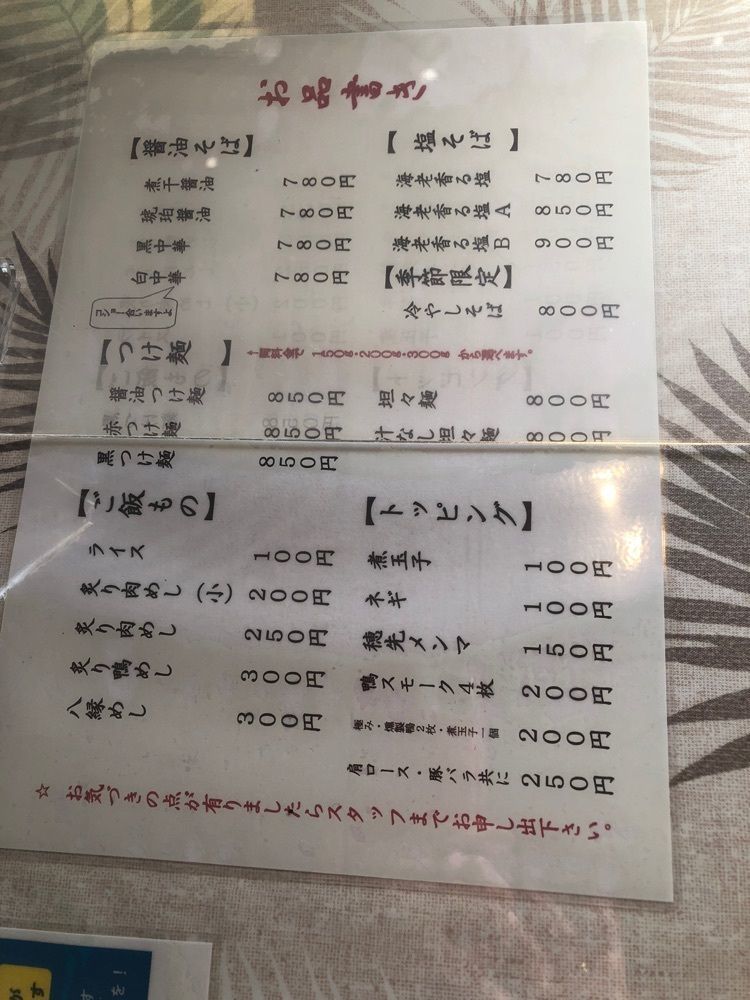 お品書き
【醤油そば】
煮干醤油 780円
琥珀醤油 780円
黒中華 780円
白中華 780円
コショー合いますよ
【つけ麺】
↓同料金で 150g・200g・300g から選べます。
醤油つけ麺 850円
赤つけ麺 850円
黒つけ麺 850円
【ご飯もの】
ライス 100円
炙り肉めし(小) 200円
炙り肉めし 250円
炙り鴨めし 300円
八縁めし 300円
【塩そば】
海老香る塩 780円
海老香る塩A 850円
海老香る塩B 900円
【季節限定】
冷やしそば 800円
坦々麺 800円
汁なし坦々麺 800円
【トッピング】
煮玉子 100円
ネギ 100円
穂先メンマ 150円
鴨スモーク4枚 200円
極み・燻製鴨2枚・煮玉子一個 200円
肩ロース・豚バラ共に 250円
☆ お気づきの点が有りましたらスタッフまでお申し出下さい。